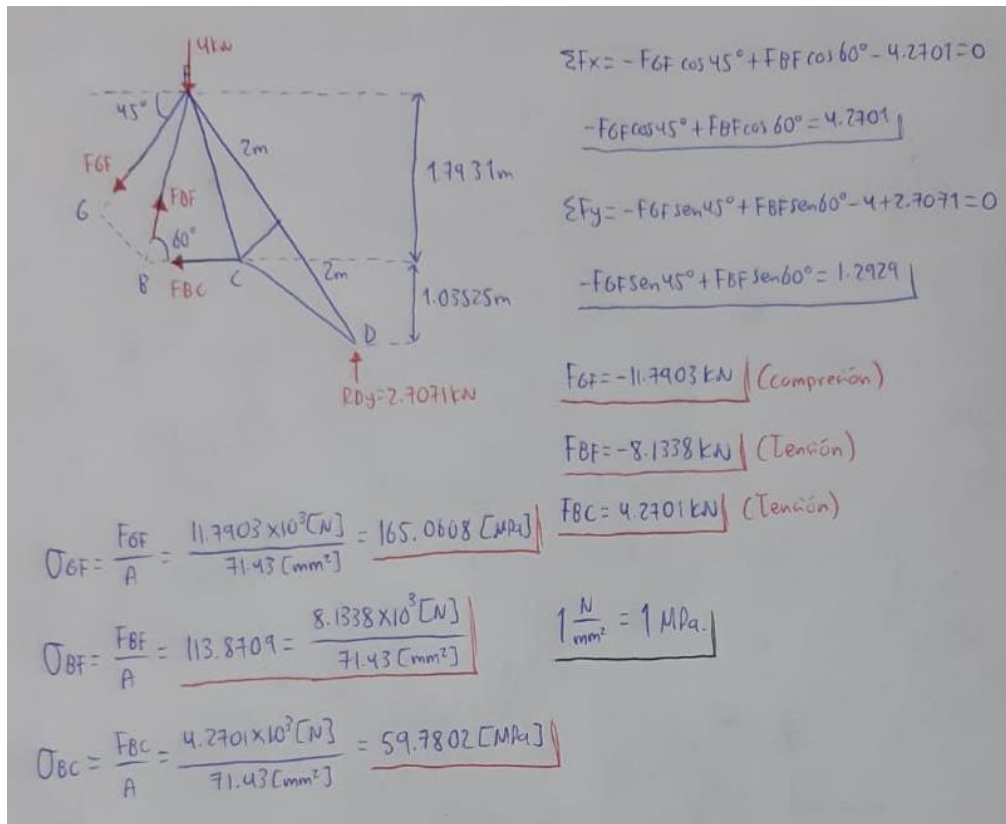 4kN
F
45°
FGF
2m
FBF
G
60°
B
FBC
C
2m
D
1.7931m
1.03525m
RDy=2.7071kN
ΣFx=-FGF cos45°+FBF cos60°-4.2701=0
-FGFcos45°+FBFcos60°=4.2701
ΣFy=-FGFsen45°+FBFsen60°-4+2.7071=0
-FGFsen45°+FBFsen60°=1.2929
FGF=-11.7903kN (Compreción)
FBF=-8.1338kN (Tención)
FBC=4.2701kN (Tención)
σGF=FGF/A=11.7903x10³[N]/71.43[mm²]=165.0608[MPa]
σBF=FBF/A=113.8709=8.1338x10³[N]/71.43[mm²]
1 N/mm²=1MPa.
σBC=FBC/A=4.2701x10³[N]/71.43[mm²]=59.7802[MPa]